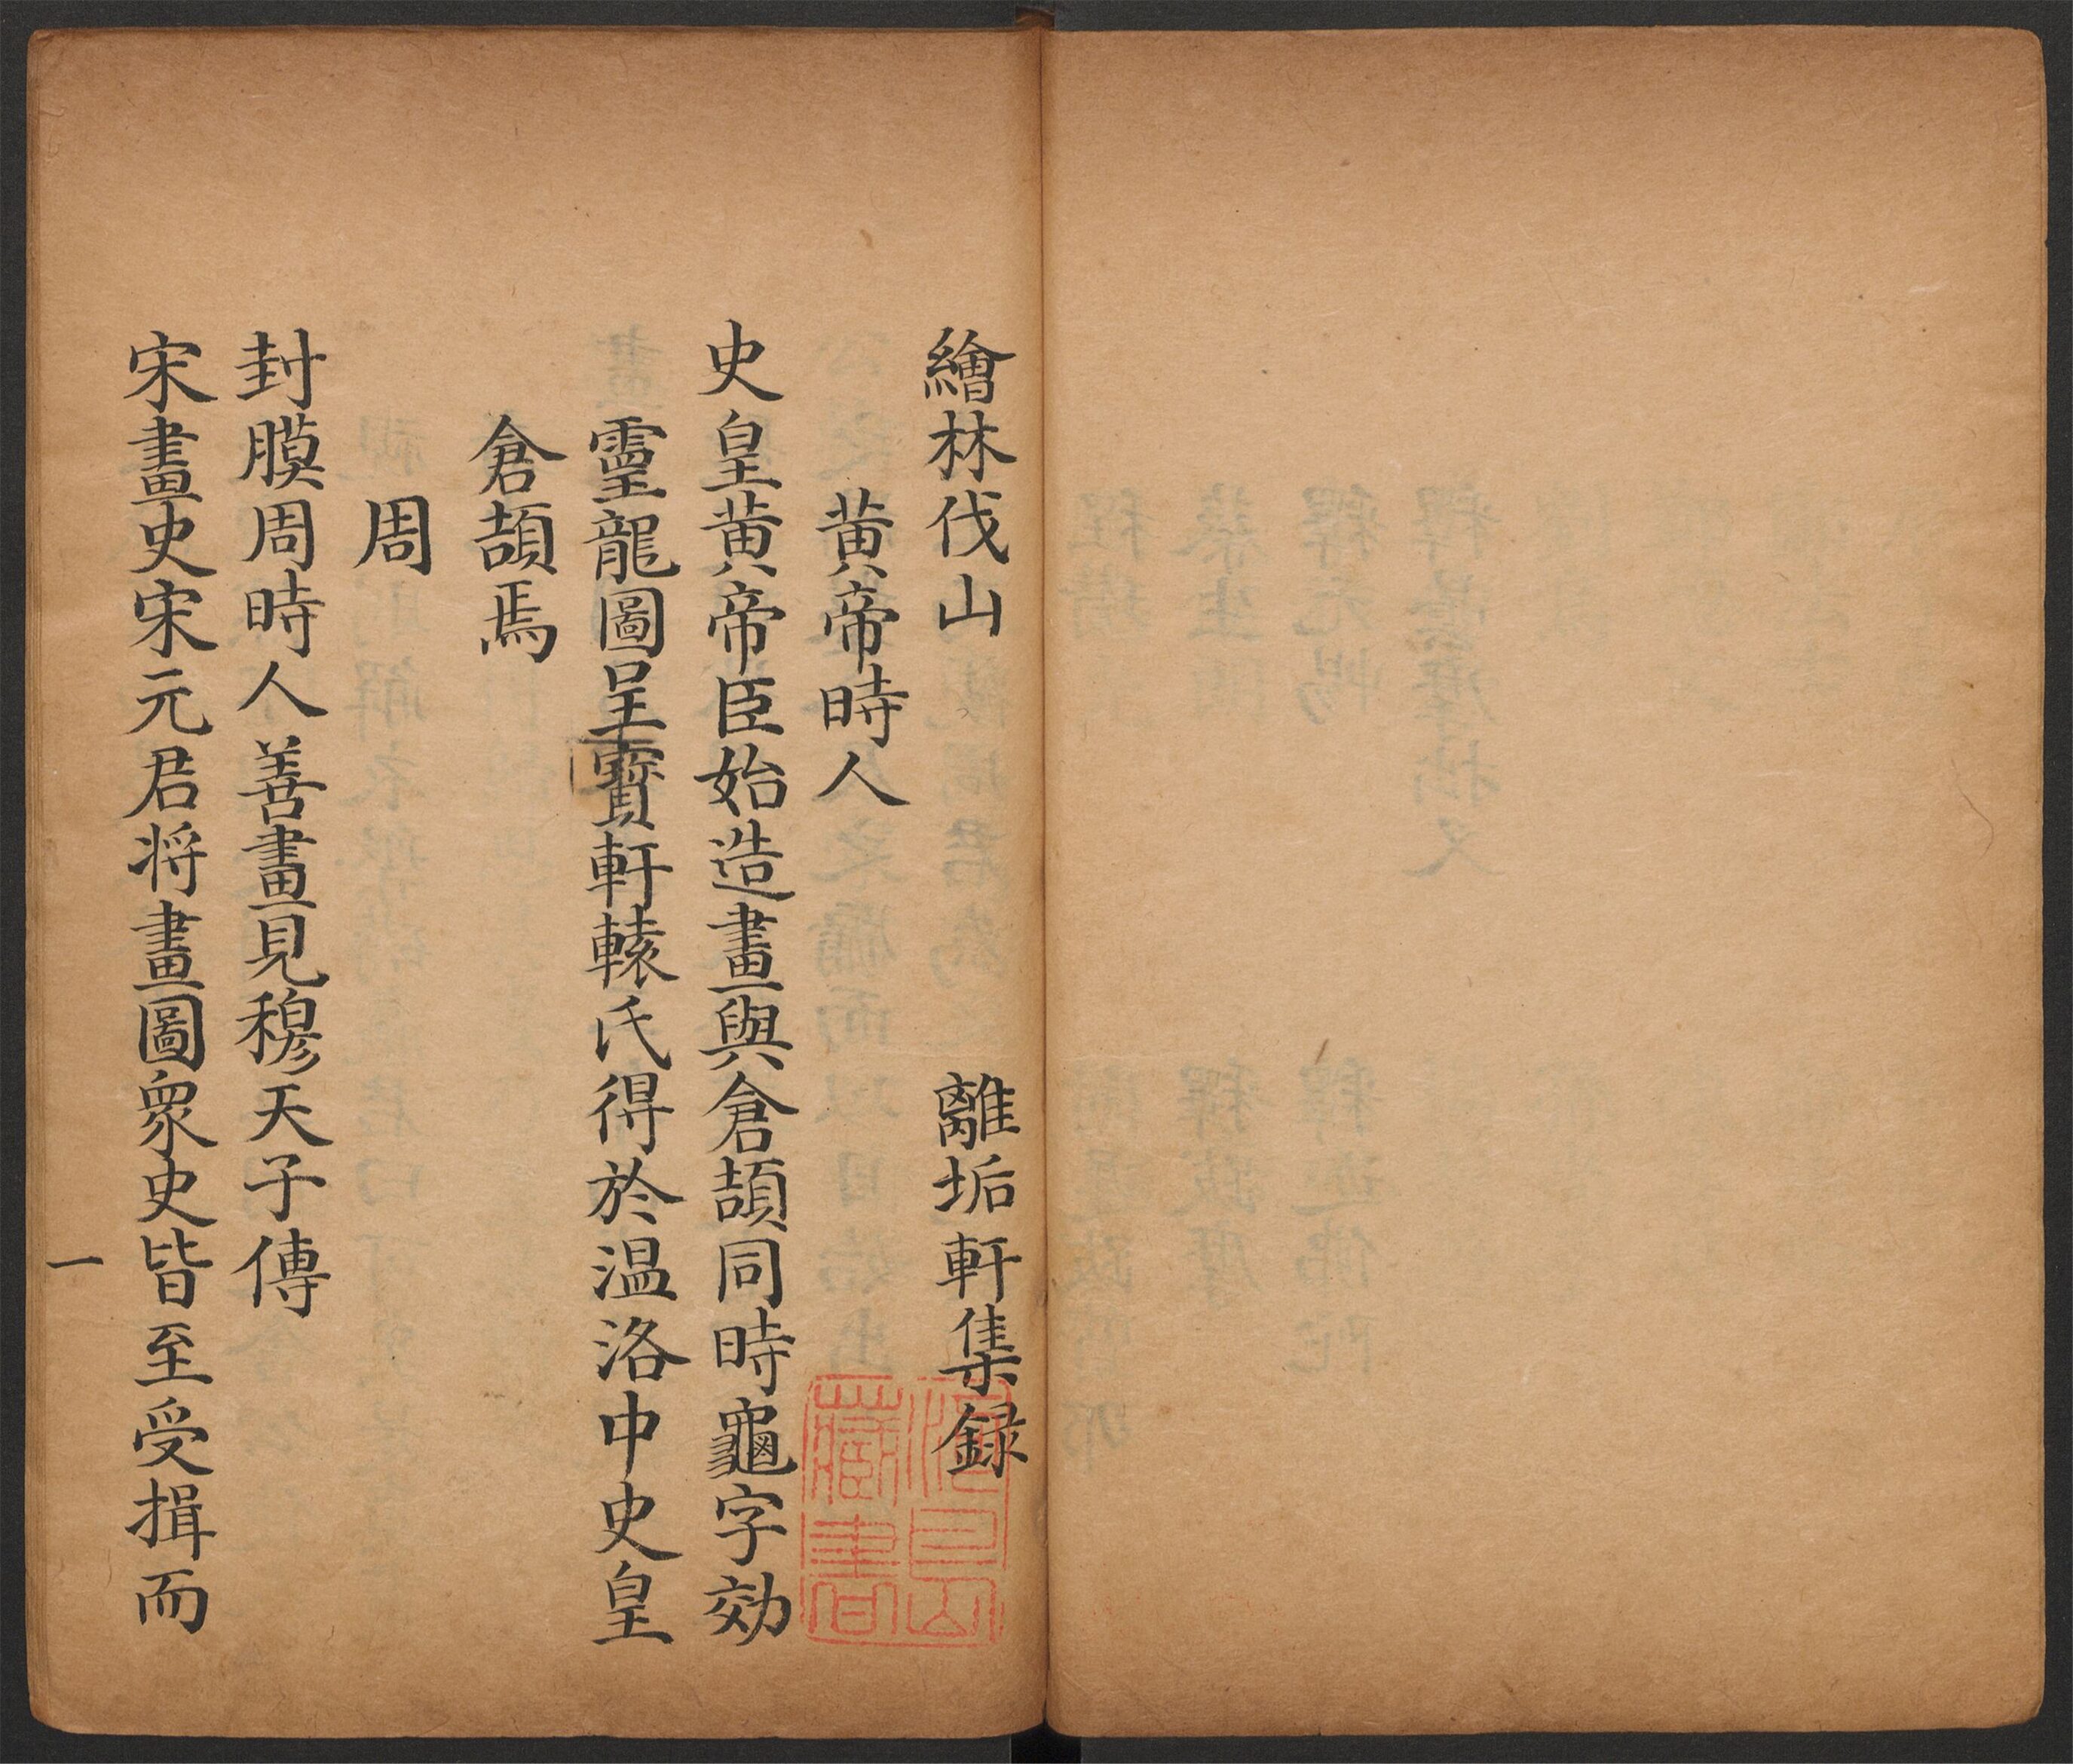 繪林伐山 離垢軒集録
黄帝時人
史皇黄帝臣始造畫與倉頡同時龜字効
靈龍圖呈寶軒轅氏得於温洛中史皇
倉頡焉
周
封膜周時人善畫見穆天子傳
宋畫史宋元君将畫圖衆史皆至受揖而
一
藏書